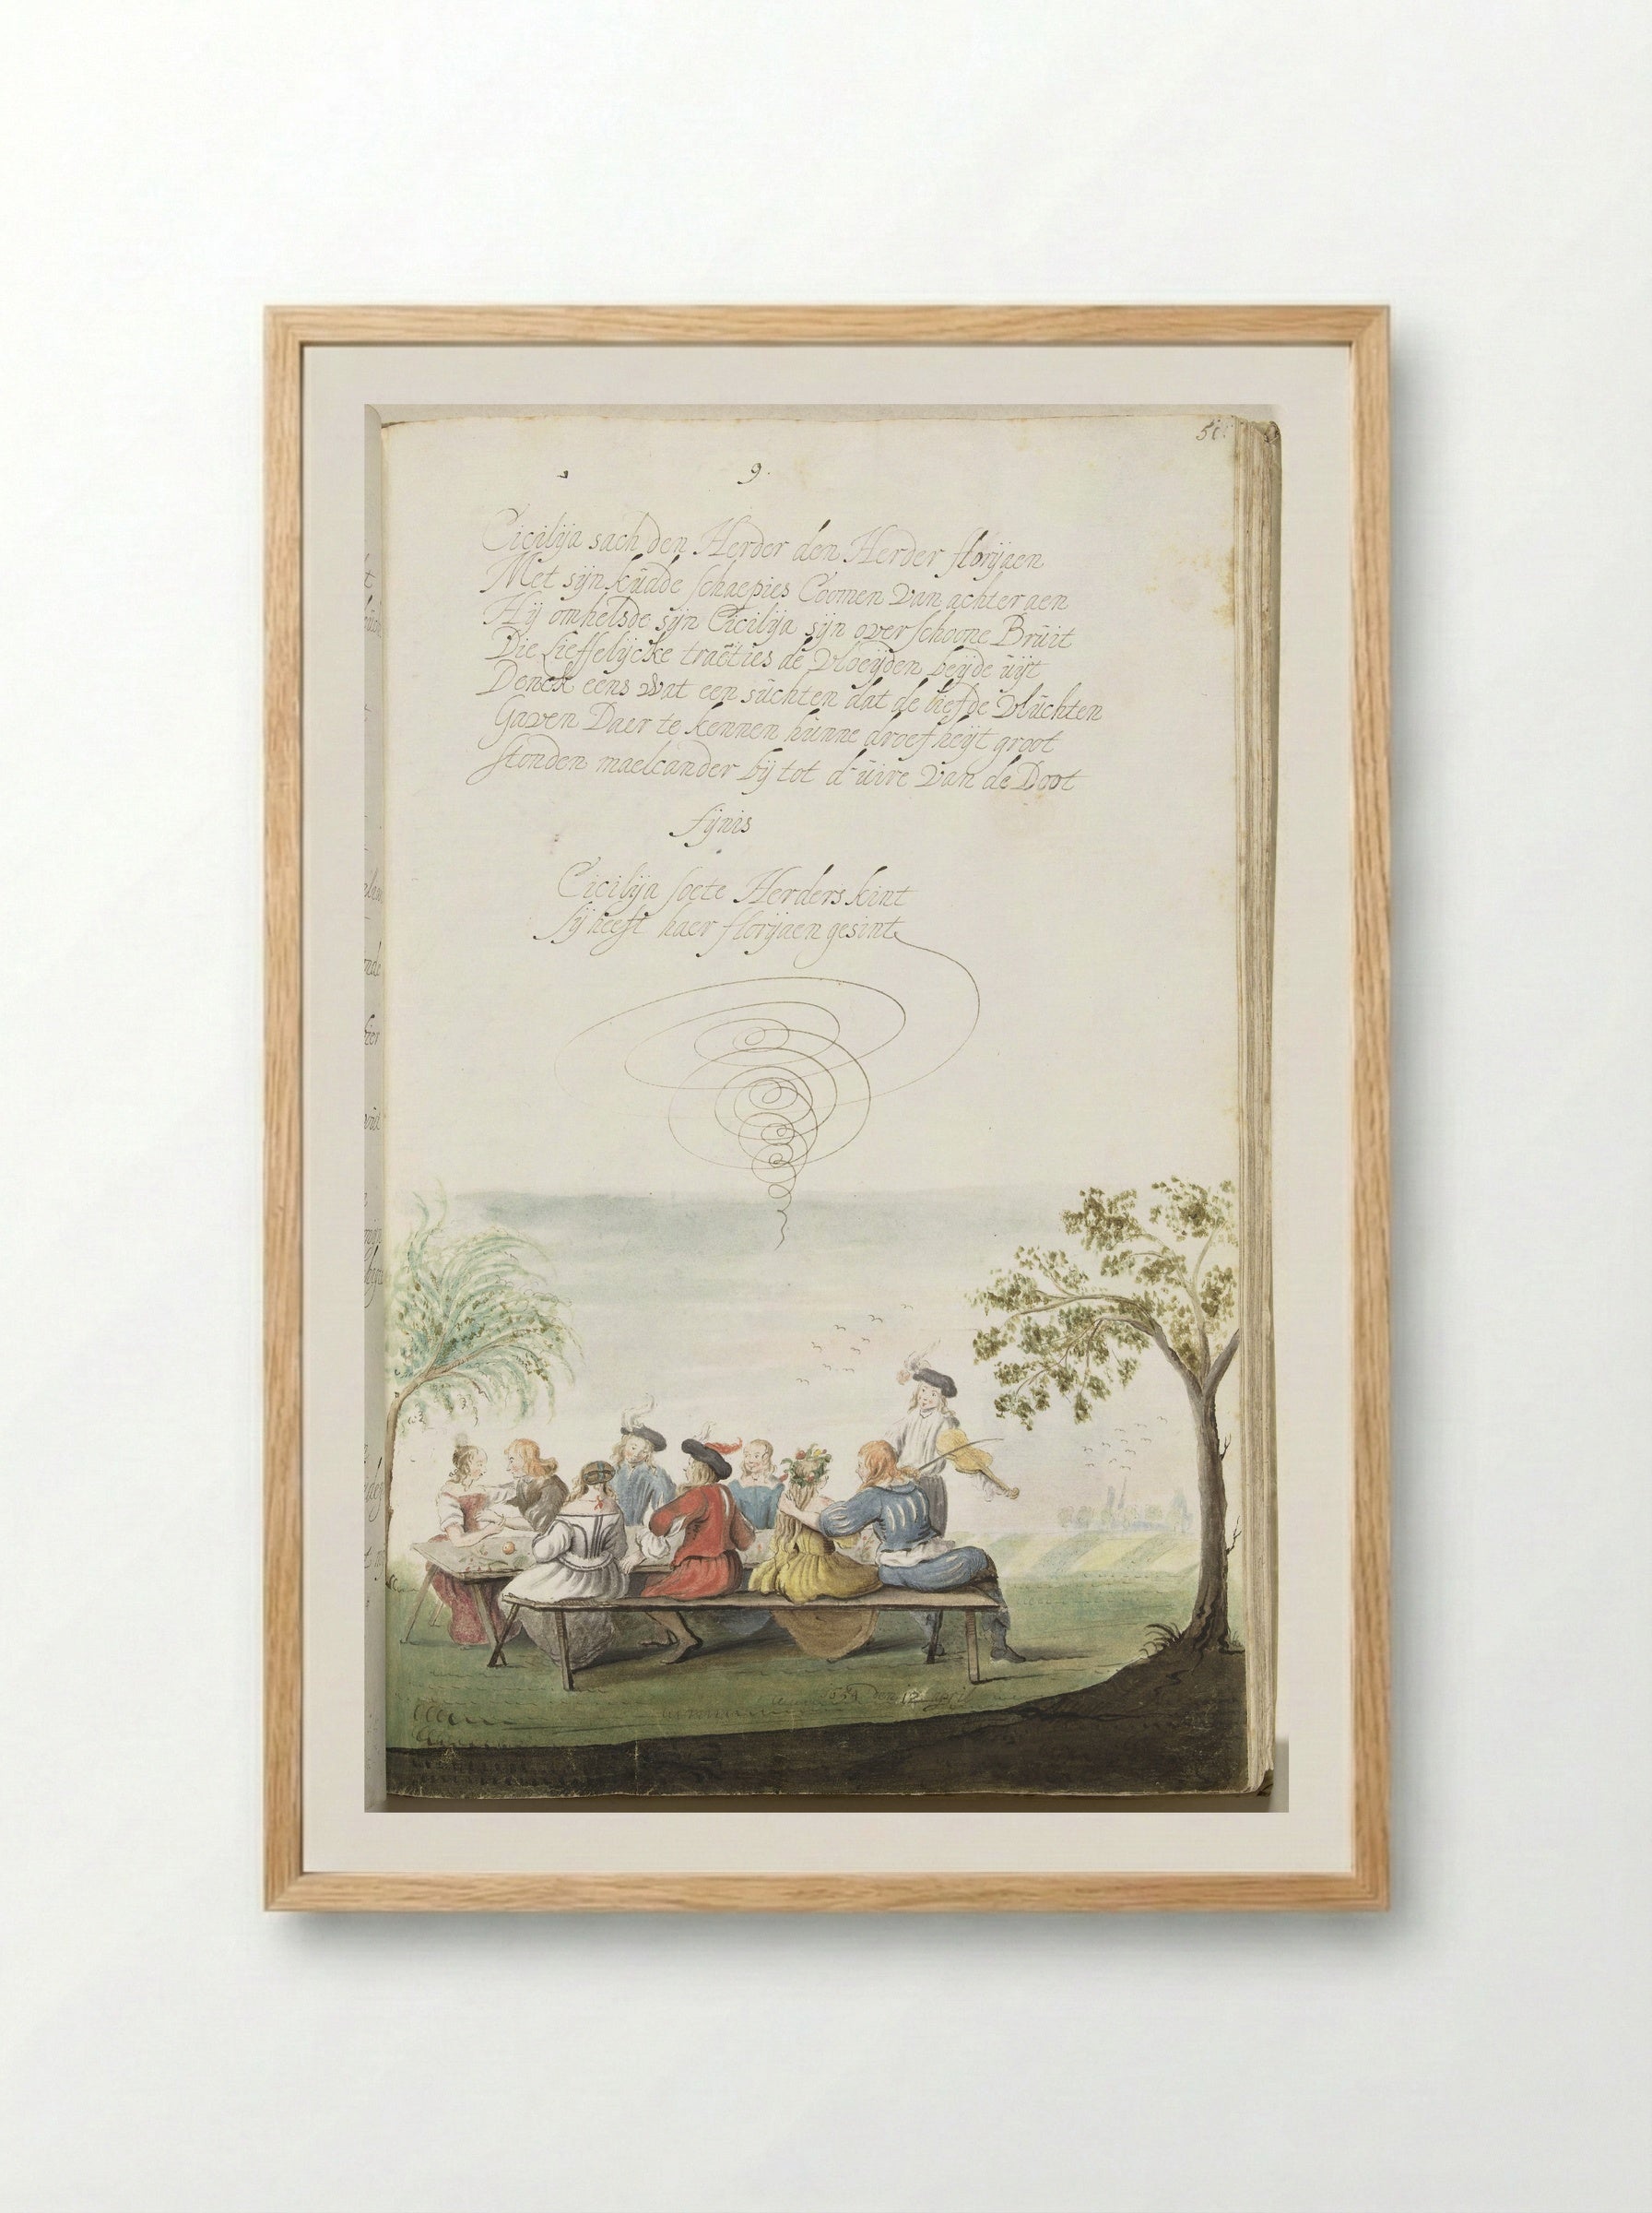 51
9.
Cicilija sach den Herder den Herder florijaen
Met sijn kudde schaepies Coomen van achter aen
Hij omhelsde sijn Cicilija sijn over schoone Bruit
Die Lieffelijcke tracties de vloeijden beijde uijt
Denck eens wat een suchten dat de liefde vluchten
Gaven Daer te kennen hunne droefheijt groot
stonden maelcander bij tot d'uire van de Doot
fijnis
Cicilija soete Herders kint
sij heeft haer florijaen gesint
den 12 april